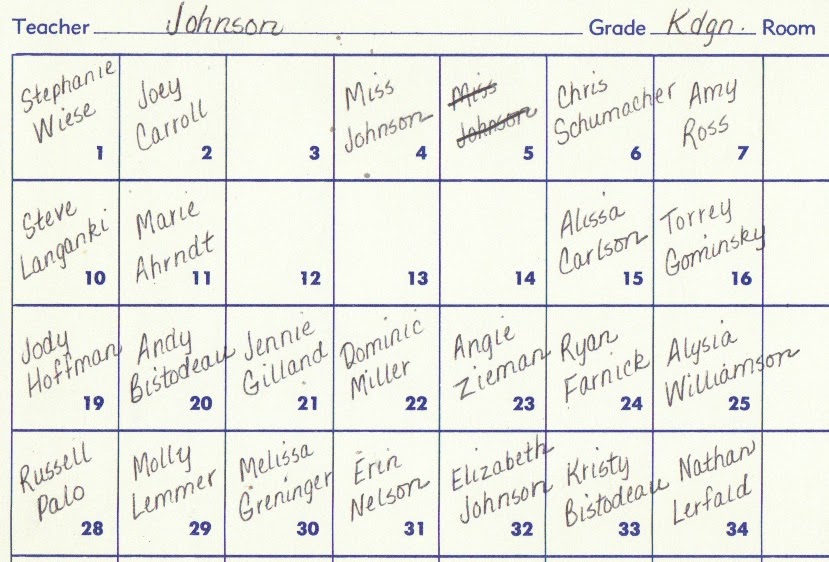 Teacher Johnson Grade Kdgn. Room
Stephanie Wiese 1
Joey Carroll 2
3
Miss Johnson 4
Miss Johnson 5
Chris Schumacher 6
Amy Ross 7
Steve Langanki 10
Marie Ahrndt 11
12
13
14
Alissa Carlson 15
Torrey Gominsky 16
Jody Hoffman 19
Andy Bistodeau 20
Jennie Gilland 21
Dominic Miller 22
Angie Zieman 23
Ryan Farnick 24
Alysia Williamson 25
Russell Palo 28
Molly Lemmer 29
Melissa Greninger 30
Erin Nelson 31
Elizabeth Johnson 32
Kristy Bistodeau 33
Nathan Lerfald 34